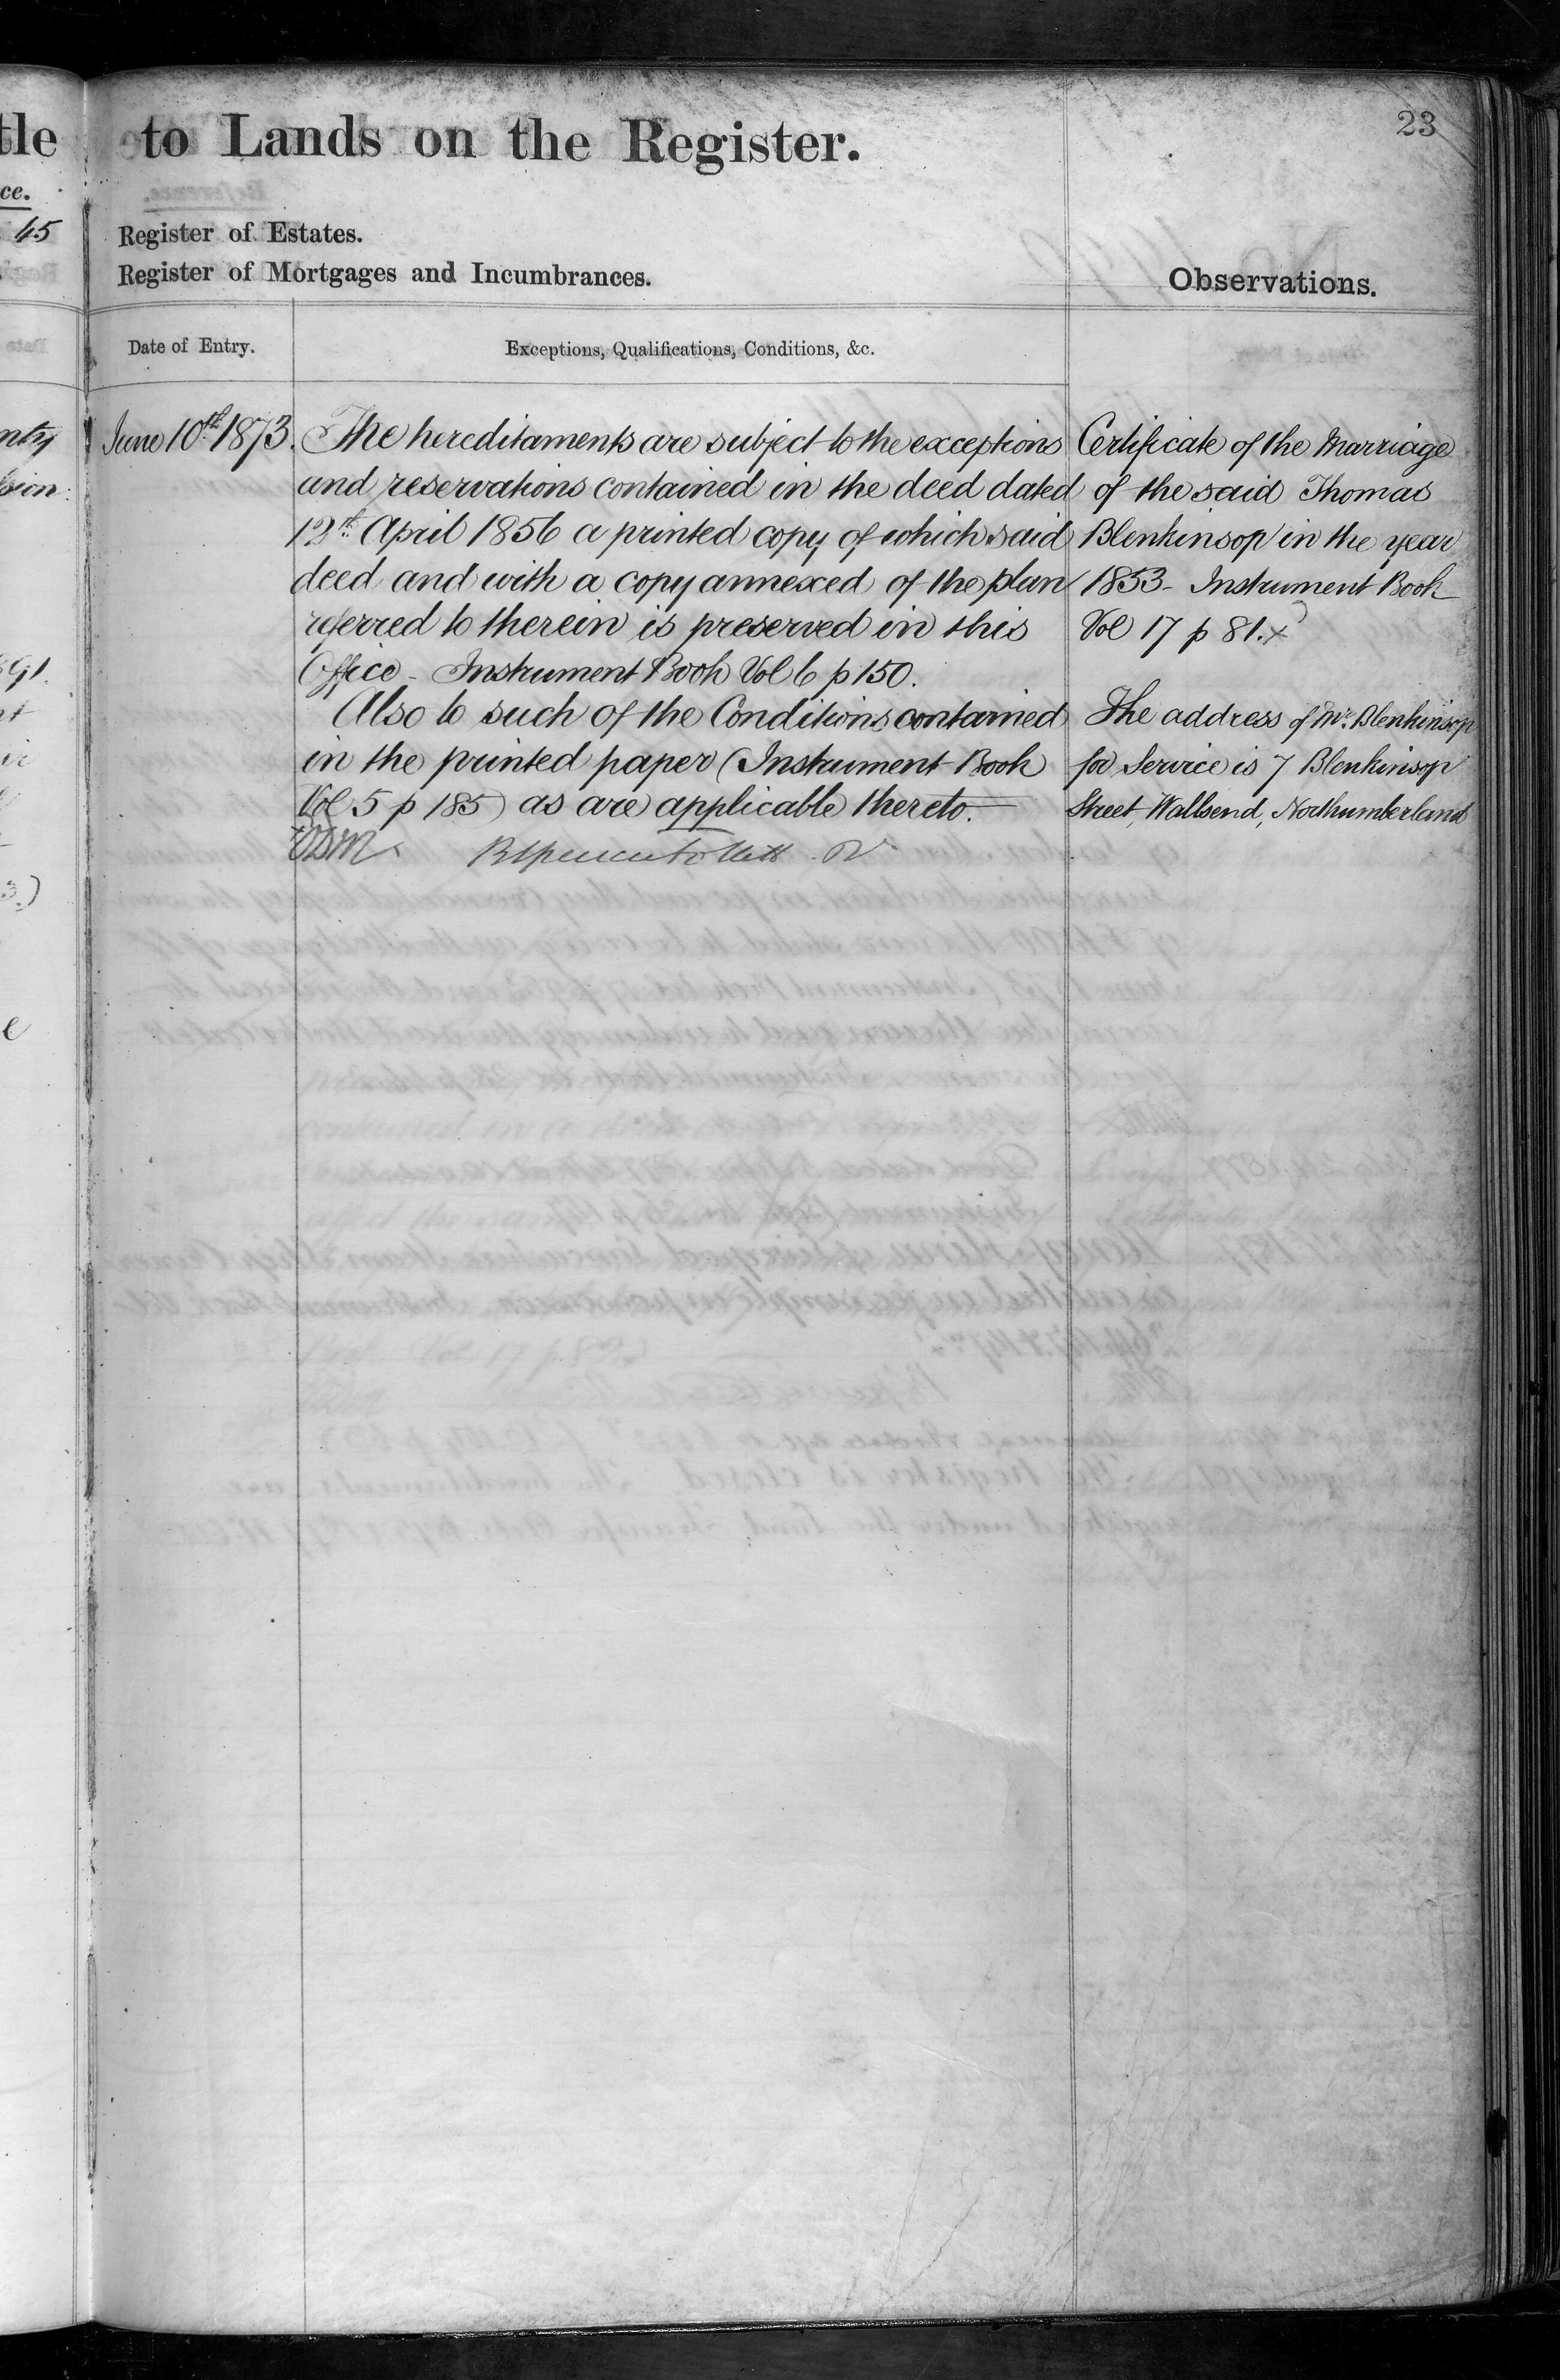 tle to Lands on the Register.
23
ce.
45
Register of Estates.
Register of Mortgages and Incumbrances.
Observations.
Date of Entry.
Exceptions, Qualifications, Conditions, &c.
June 10th 1873.
The hereditaments are subject to the exceptions
and reservations contained in the deed dated
12th April 1856 a printed copy of which said
deed and with a copy annexed of the plan
referred to therein is preserved in this
Office - Instrument Book Vol 6 p 150.
Also to such of the Conditions contained
in the printed paper (Instrument Book
Vol 5 p 185) as are applicable thereto.
Certificate of the Marriage
of the said Thomas
Blenkinsop in the year
1853 - Instrument Book
Vol 17 p 81.
The address of Mr. Blenkinsop
for Service is 7 Blenkinsop
Street, Wallsend, Northumberland